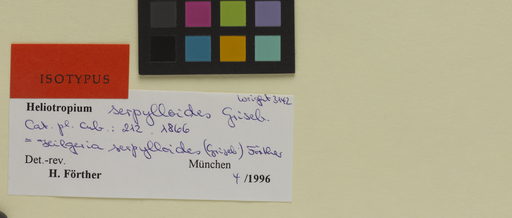 ISOTYPUS
Wright 3142
Heliotropium serpylloides Griseb.
Cat. pl. Cub.: 212. 1866
= serpylloides (Griseb.) Förther
Det.-rev. München
H. Förther 4/1996